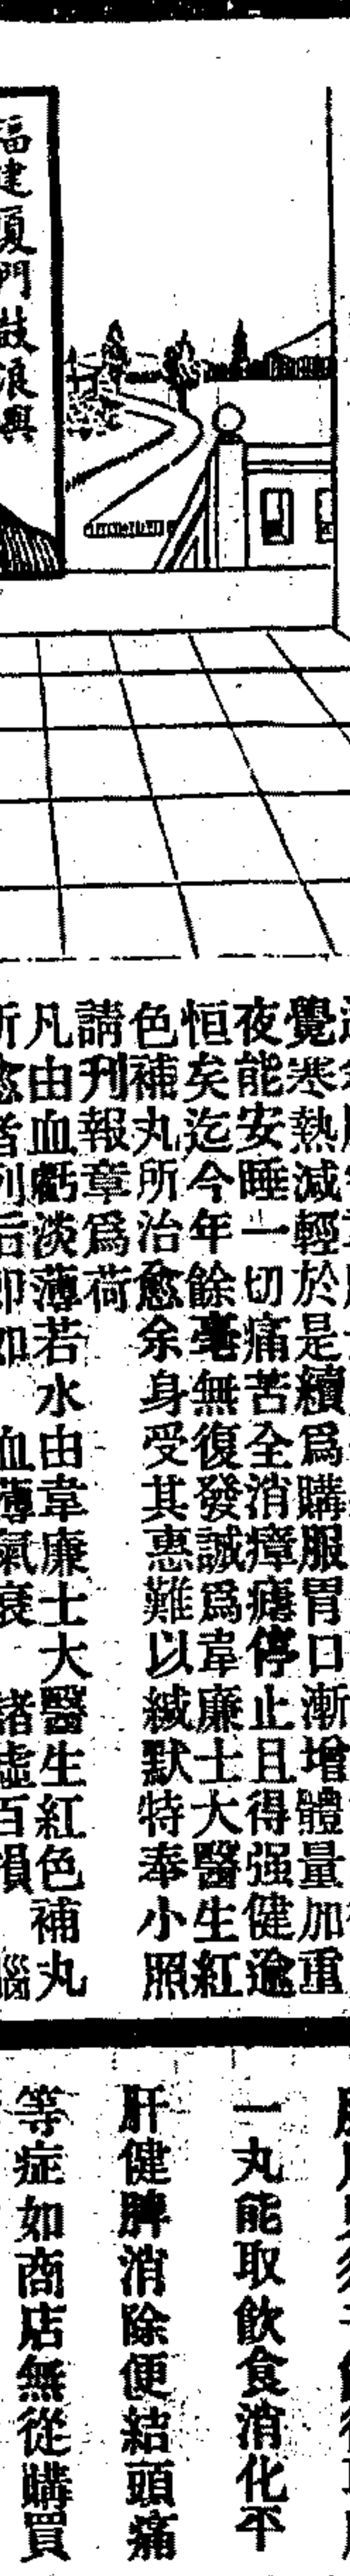 福建厦門鼓浪與
覺寒熱減輕於是續爲購服胃口漸增體量加重
夜能安睡一切痛苦全消瘴癘停止且得强健逾
恒矣迄今年餘毫無復發誠爲韋廉士大醫生紅
色補丸所治愈余身受其惠難以緘默特奉小照
請刊報章爲荷
凡由血虧淡薄若水由韋廉士大醫生紅色補丸
所愈者列后即如 血薄氣衰 諸虛百損 腦
一丸能取飲食消化平
肝健脾消除便結頭痛
等症如商店無從購買